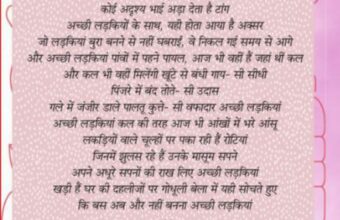 कोई अदृश्य भाई अड़ा देता है टांग
अच्छी लड़कियों के साथ, यही होता आया है अक्सर
जो लड़कियां बुरा बनने से नहीं घबराईं, वे निकल गई समय से आगे
और अच्छी लड़कियां पांवों में पहने पायल, आज भी वहीं हैं जहां थीं कल
और कल भी वहीं मिलेंगी खूंटे से बंधी गाय- सी सीधी
पिंजरे में बंद तोते- सी उदास
गले में जंजीर डाले पालतू कुत्ते- सी वफादार अच्छी लड़कियां
अच्छी लड़कियां कल की तरह आज भी आंखों में भरे आंसू
लकड़ियों वाले चूल्हों पर पका रही हैं रोटियां
जिनमें झुलस रहे हैं उनके मासूम सपने
अपने अधूरे सपनों की राख लिए अच्छी लड़कियां
खड़ी हैं घर की दहलीजों पर गोधूली बेला में यही सोचते हुए
कि बस अब और नहीं बनना अच्छी लड़कियां